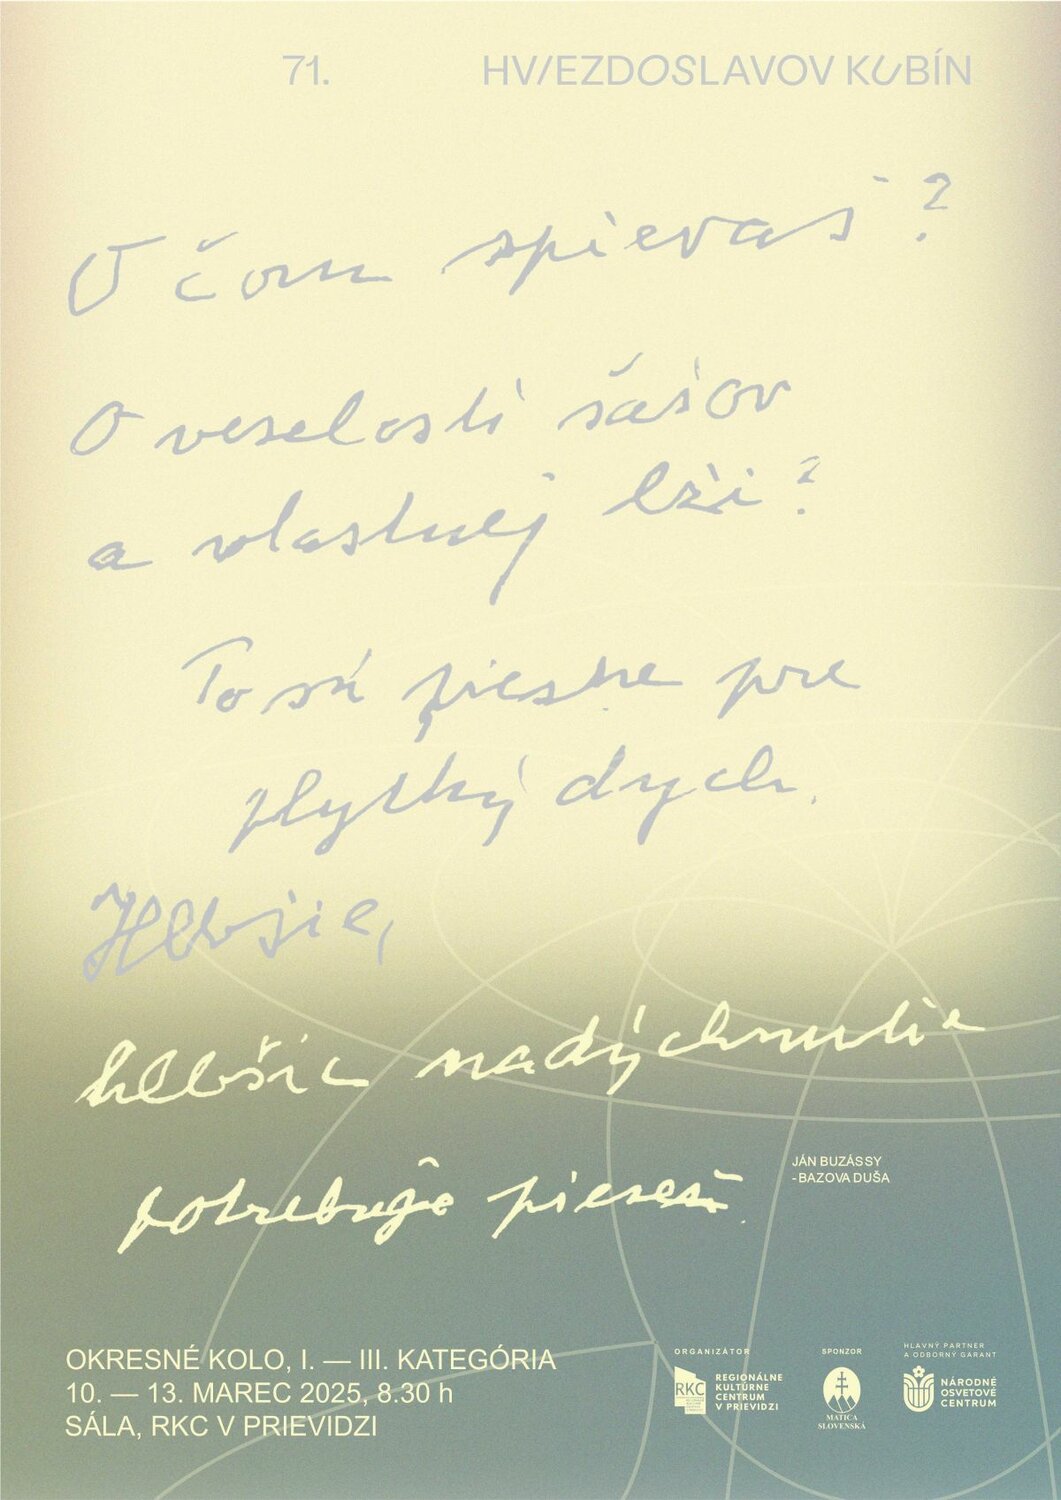 71. HVIEZDOSLAVOV KUBÍN
O čom spievaš?
O veselosti šašov
a vlastnej lži?
To sú piesne pre
plytký dych.
Hlbšie,
hlbšie nadýchnutie
potrebuje pieseň.
JÁN BUZÁSSY
-BAZOVA DUŠA
OKRESNÉ KOLO, I. — III. KATEGÓRIA
10. — 13. MAREC 2025, 8.30 h
SÁLA, RKC V PRIEVIDZI
ORGANIZÁTOR
RKC
REGIONÁLNE
KULTÚRNE
CENTRUM
V PRIEVIDZI
SPONZOR
MATICA
SLOVENSKÁ
HLAVNÝ PARTNER
A ODBORNÝ GARANT
NÁRODNÉ
OSVETOVÉ
CENTRUM